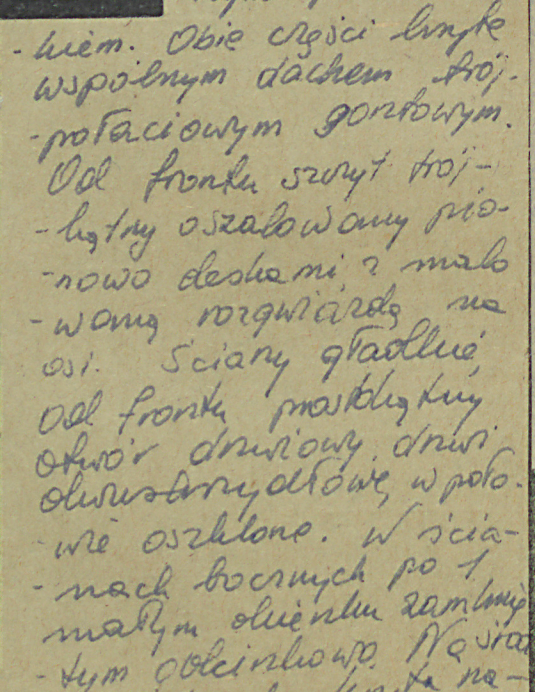 -kiem. Obie części kryte
wspólnym dachem trój-
-połaciowym gontowym.
Od frontu szczyt trój-
-kątny oszalowany pio-
-nowo deskami z malo
-waną rozgwiazdą na
osi. Ściany gładkie,
od frontu prostokątny
otwór drzwiowy, drzwi
dwuskrzydłowe, w poło-
-wie oszklone. W ścia-
-nach bocznych po 1
małym okienku zamknię
-tym odcinkowo. Na
na-